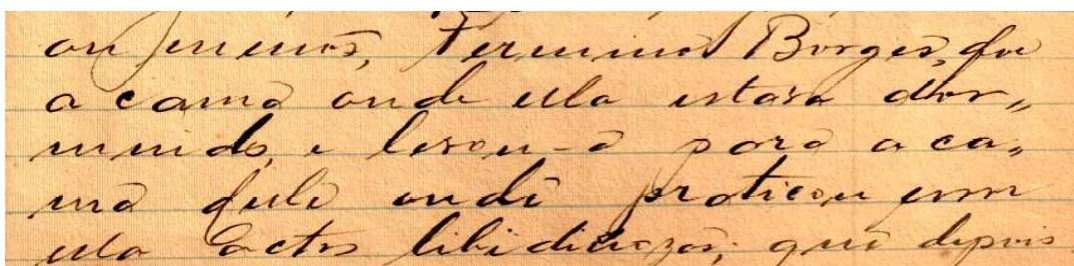 ou menos, Fermino Borges, foi
a cama onde ella estava dor„
mindo, e levou-a para a ca„
ma delle onde praticou com
ella actos libidinozos; que depois